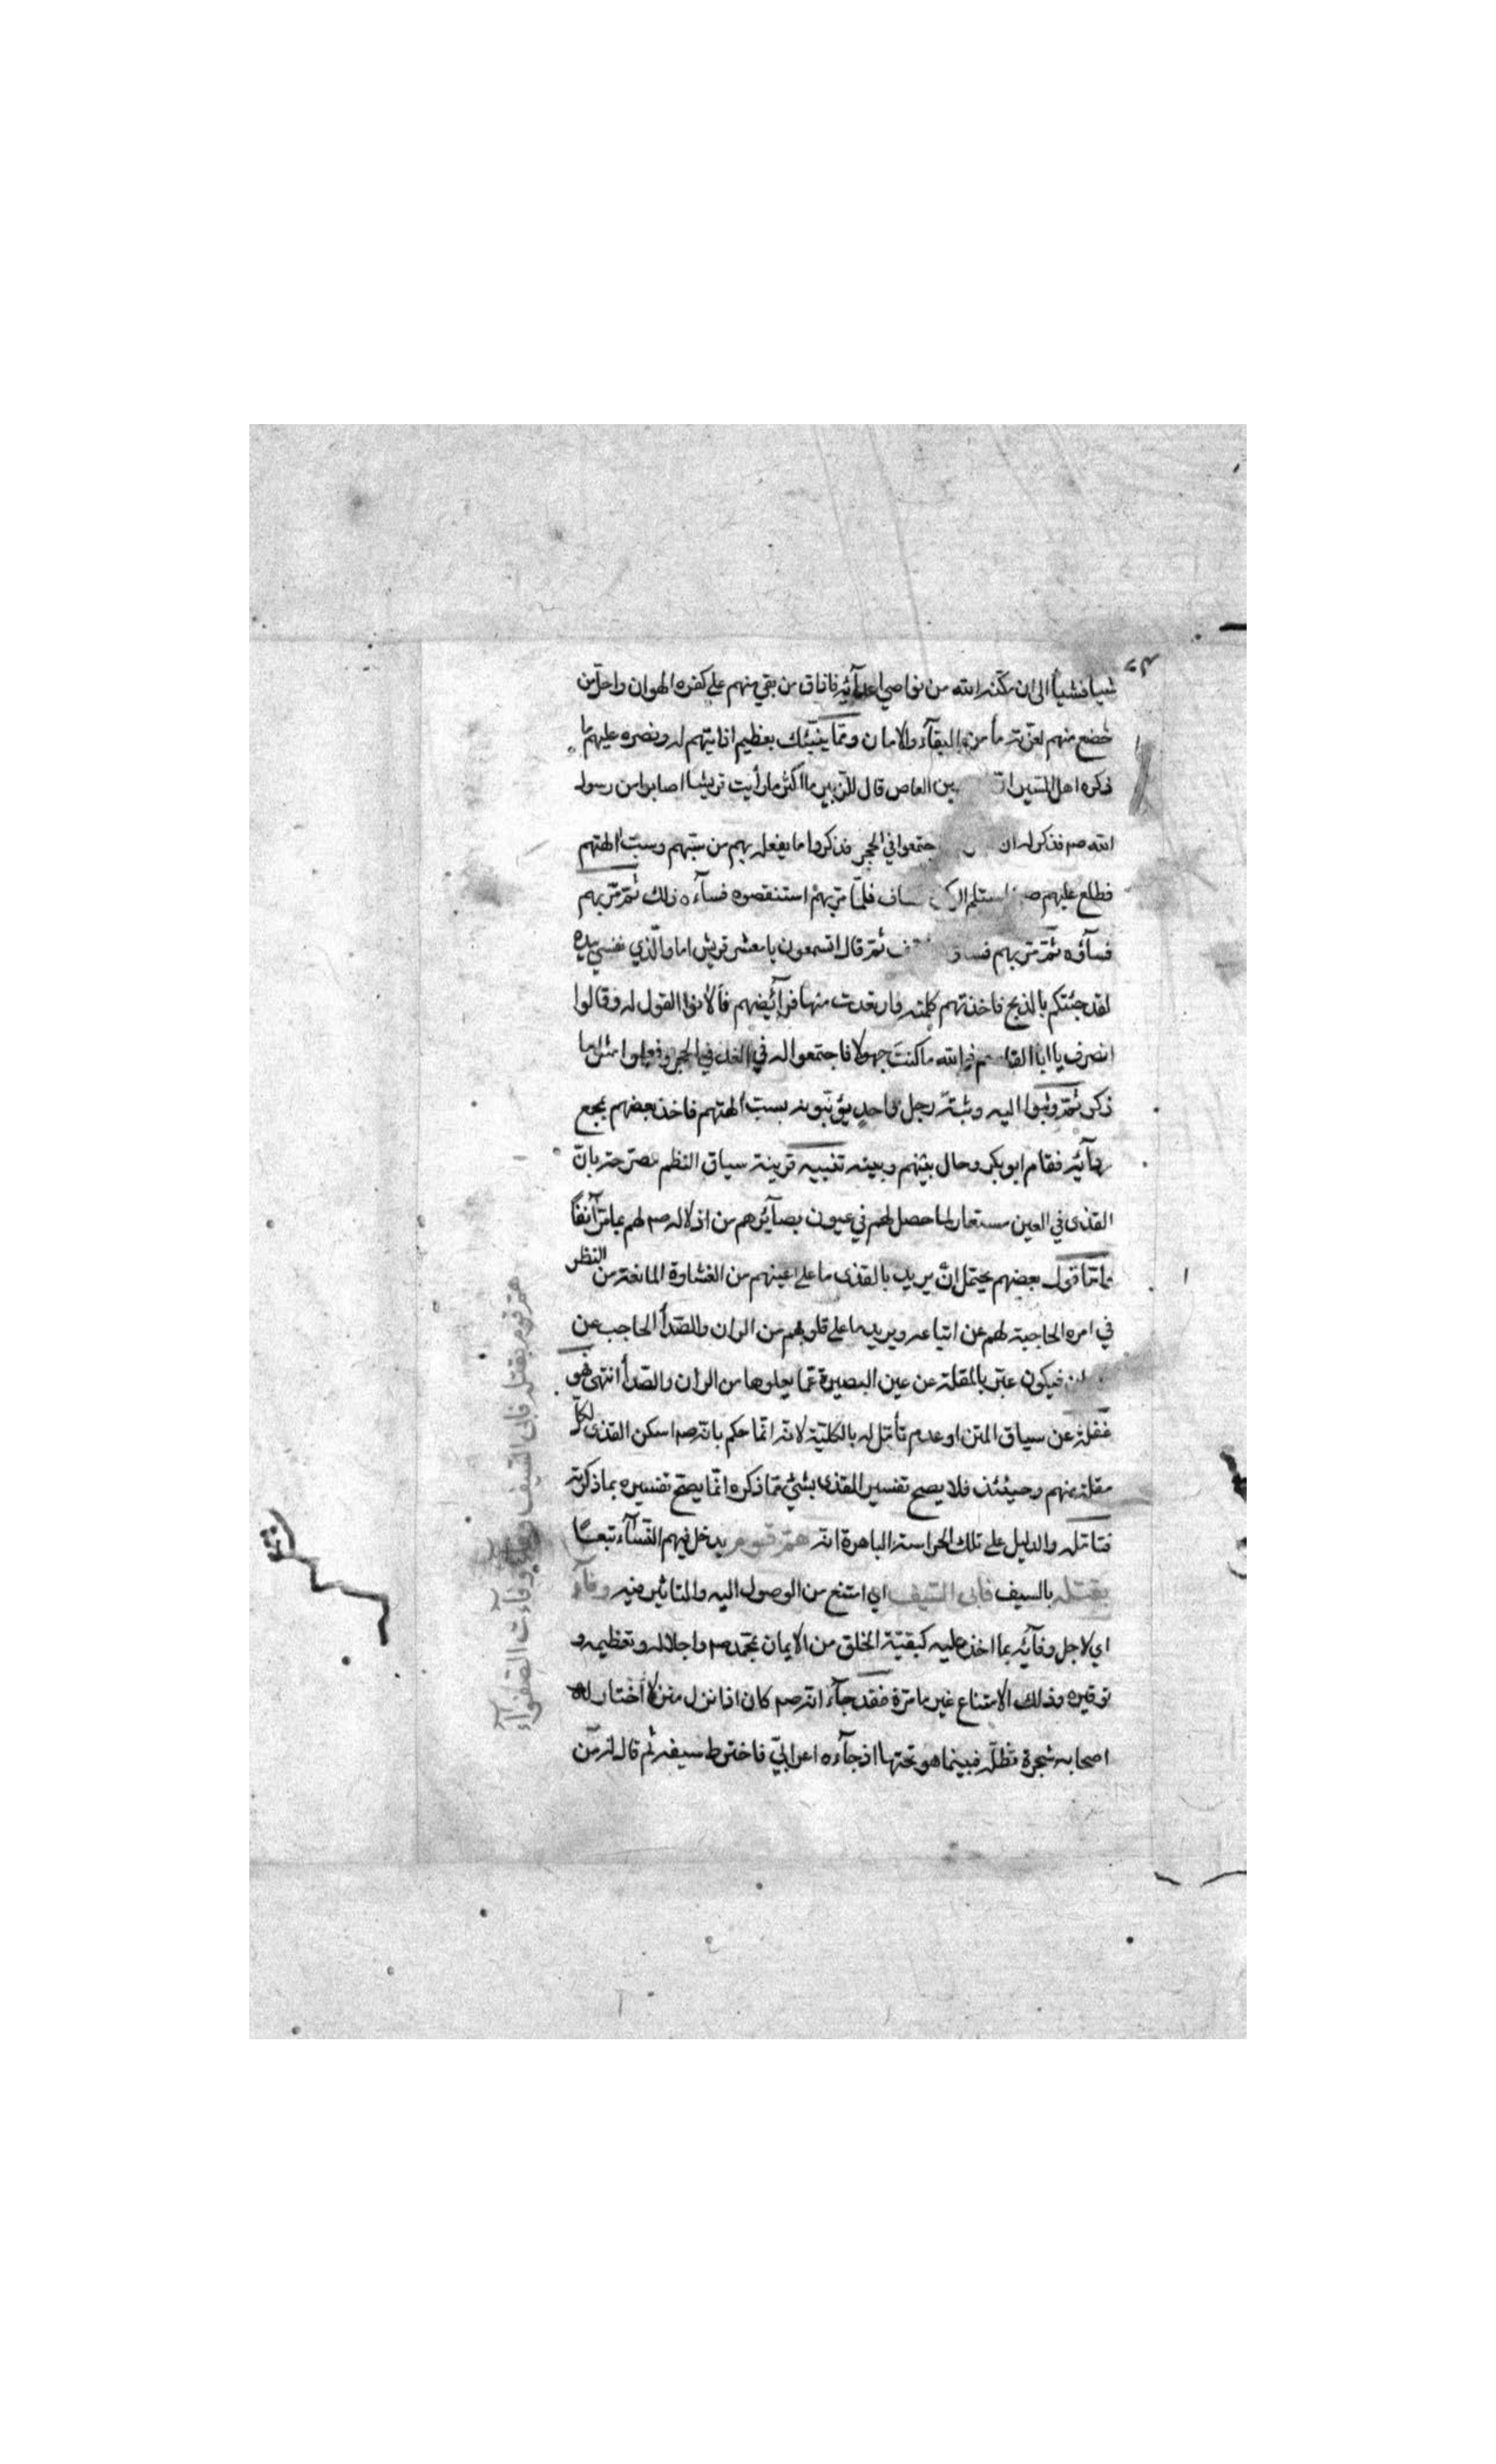 شيا فشيأ الى ان مكنه الله من نواصي اعدآئه فاذاق من بقي منهم على كفره الهوان واحل من
خضع منهم لعزته مأمن البقآء والامان ومما ينبئك بعظيم اذايتهم له ونصره عليهم ما
ذكره اهل السير بن العاص قال للزبير ما اكثر ما رأيت قريشا اصابوا من رسول
الله صم فذكر له ان جتمعوا في الحجر فذكروا ما يفعل بهم من سبهم وسب الهتهم
فطلع عليهم صم فلما مر بهم استنقصوه فسآءه ذلك ثم مر بهم
فسآؤه ثم مر بهم ثم قال اتسمعون يا معشر قريش اما والذي نفسي بيده
لقد جئتكم بالذبح فاخذتهم كلمته وارتعدت منها فرآئضهم فألانوا القول له وقالوا
انصرف يا ابا القاسم فوالله ما كنت جهولا فاجتمعوا له في الغد في الحجر وفعلوا مثل ما
ذكر ثم وثبوا اليه وثبة رجل واحد يؤنبونه بسب الهتهم فاخذ بعضهم بمجع
ردآئه فقام ابو بكر وحال بينهم وبينه تنبيه قرينة سياق النظم مصرحة بان
القذى في العين مستعار لما حصل لهم في عيون بصآئرهم من اذلاله صم لهم بما مر آنفا
فاما قول بعضهم يحتمل ان يريد بالقذى ما على اعينهم من الغشاوة المانعة من النظر
في امره الحاجبة لهم عن اتباعه ويريد ما على قلوبهم من الران والصدأ الحاجب عن
فيكون عبر بالمقلة عن عين البصيرة عما يجلوها من الران والصدأ انتهى فهو
غفلة عن سياق المتن او عدم تأمل له بالكلية لانه انما حكم بانه صم اسكن القذى لكل
مقلة منهم وحينئذ فلا يصح تفسير القذى بشئ مما ذكره انما يصح تفسيره بما ذكرته
فتامله والدليل على تلك الحراسة الباهرة انه هم قوم يدخل فيهم النسآء تبعا
بقتله بالسيف فأبى السيف اي امتنع من الوصول اليه والتاثير فيه وفآء
اي لاجل وفآئه بما اخذ عليه كبقية الخلق من الايمان بمحمد صم واجلاله وتعظيمه و
توقيره وذلك الامتناع غير ما مرة فقد جآء انه صم كان اذا نزل منزلا اختار له
اصحابه شجرة تظله فبينما هو تحتها اذ جآءه اعرابي فاخترط سيفه ثم قال له من
هم قوم بقتله فأبى السيف وفآء وفآءت الصفوآء